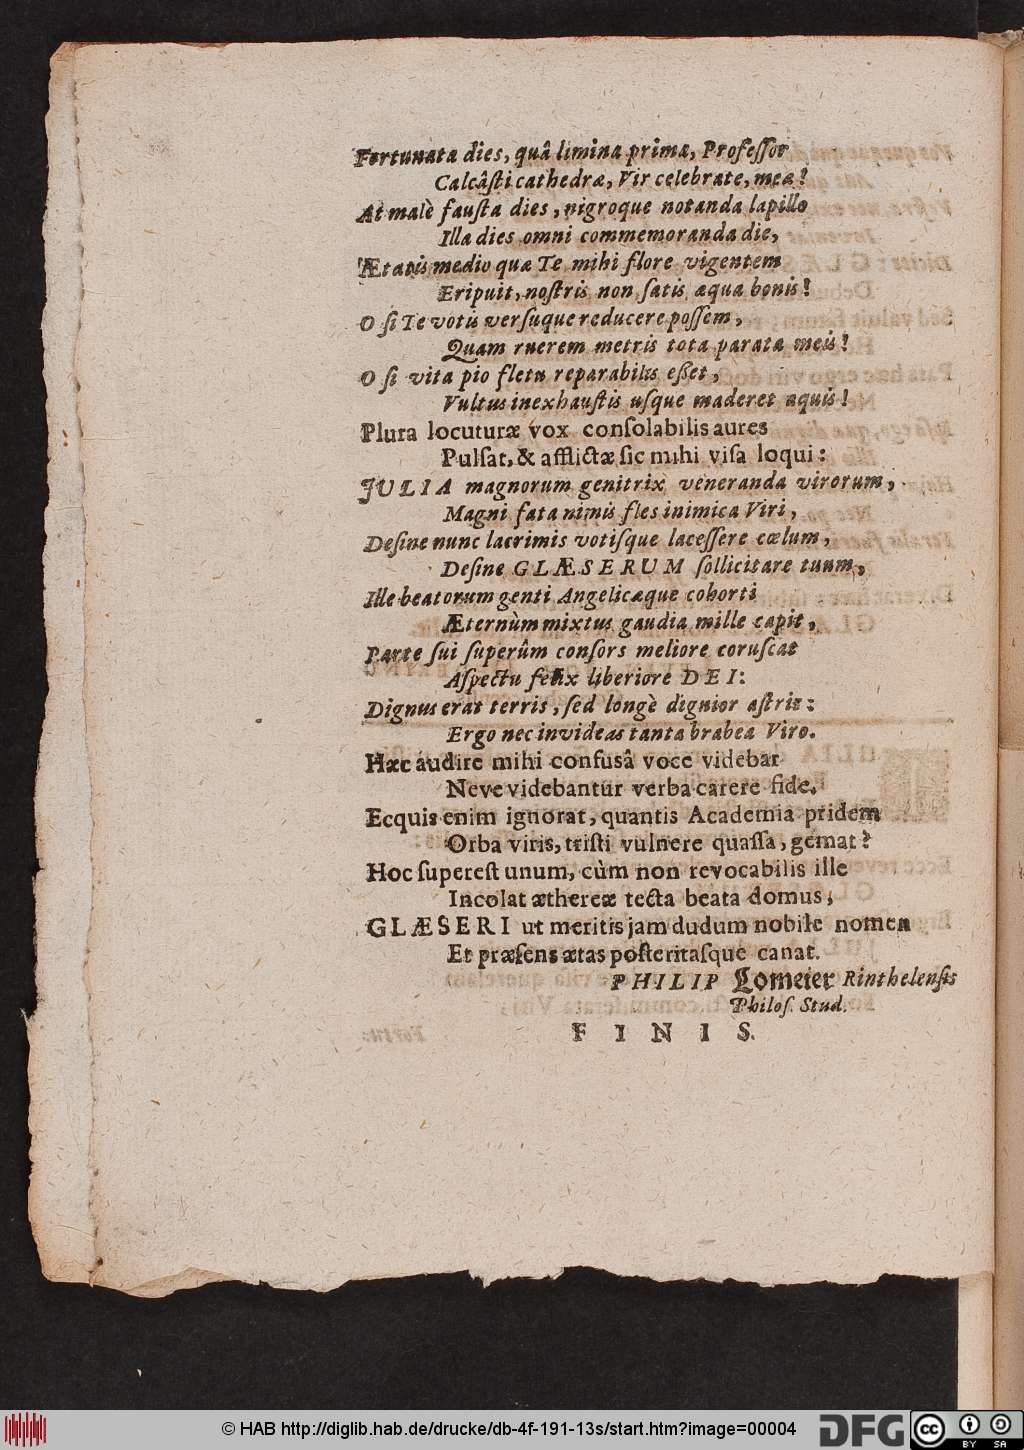 Fortunata dies, quâ limina prima, Profeſſor
Calcâſti cathedræ, Vir celebrate, meæ!
At malè fauſta dies, nigroque notanda lapillo
Illa dies omni commemoranda die,
Ætatis medio quæ Te mihi flore vigentem
Eripuit, noſtris non ſatis æqua bonis!
O ſi Te votis verſuque reducere poſſem,
Quam ruerem metris tota parata meis!
O ſi vita pio fletu reparabilis eßet,
Vultus inexhauſtis uſque maderet aquis!
Plura locuturæ vox conſolabilis aures
Pulſat, & afflictæ ſic mihi viſa loqui:
JULIA magnorum genitrix veneranda virorum,
Magni fata nimis fles inimica Viri,
Deſine nunc lacrimis votiſque laceſſere cœlum,
Deſine GLÆSERUM ſollicitare tuum,
Ille beatorum genti Angelicæque cohorti
Æternùm mixtus gaudia mille capit,
Parte ſui ſuperûm conſors meliore coruſcat
Aſpectu felix liberiore DEI:
Dignus erat terris, ſed longè dignior aſtris:
Ergo nec invideas tanta brabea Viro.
Hæc audire mihi confusâ voce videbar
Neve videbantur verba carere fide.
Ecquis enim ignorat, quantis Academia pridem
Orba viris, triſti vulnere quaſſa, gemat?
Hoc ſupereſt unum, cùm non revocabilis ille
Incolat æthereæ tecta beata domus,
GLÆSERI ut meritis jam dudum nobile nomen
Et præſens ætas poſteritaſque canat.
PHILIP Lomeier Rinthelenſis
Philoſ. Stud.
FINIS.
© HAB http://diglib.hab.de/drucke/db-4f-191-13s/start.htm?image=00004
DFG
cc
BY SA